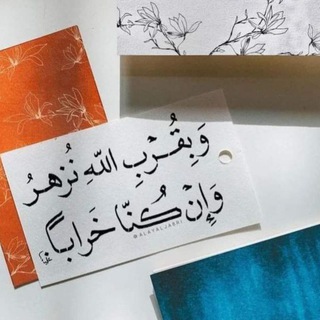 وَبِقُرْبِ اللّهِ نُزهرُ
وَإِنْ كُنّا خَراباً
@ALAYALJABRI